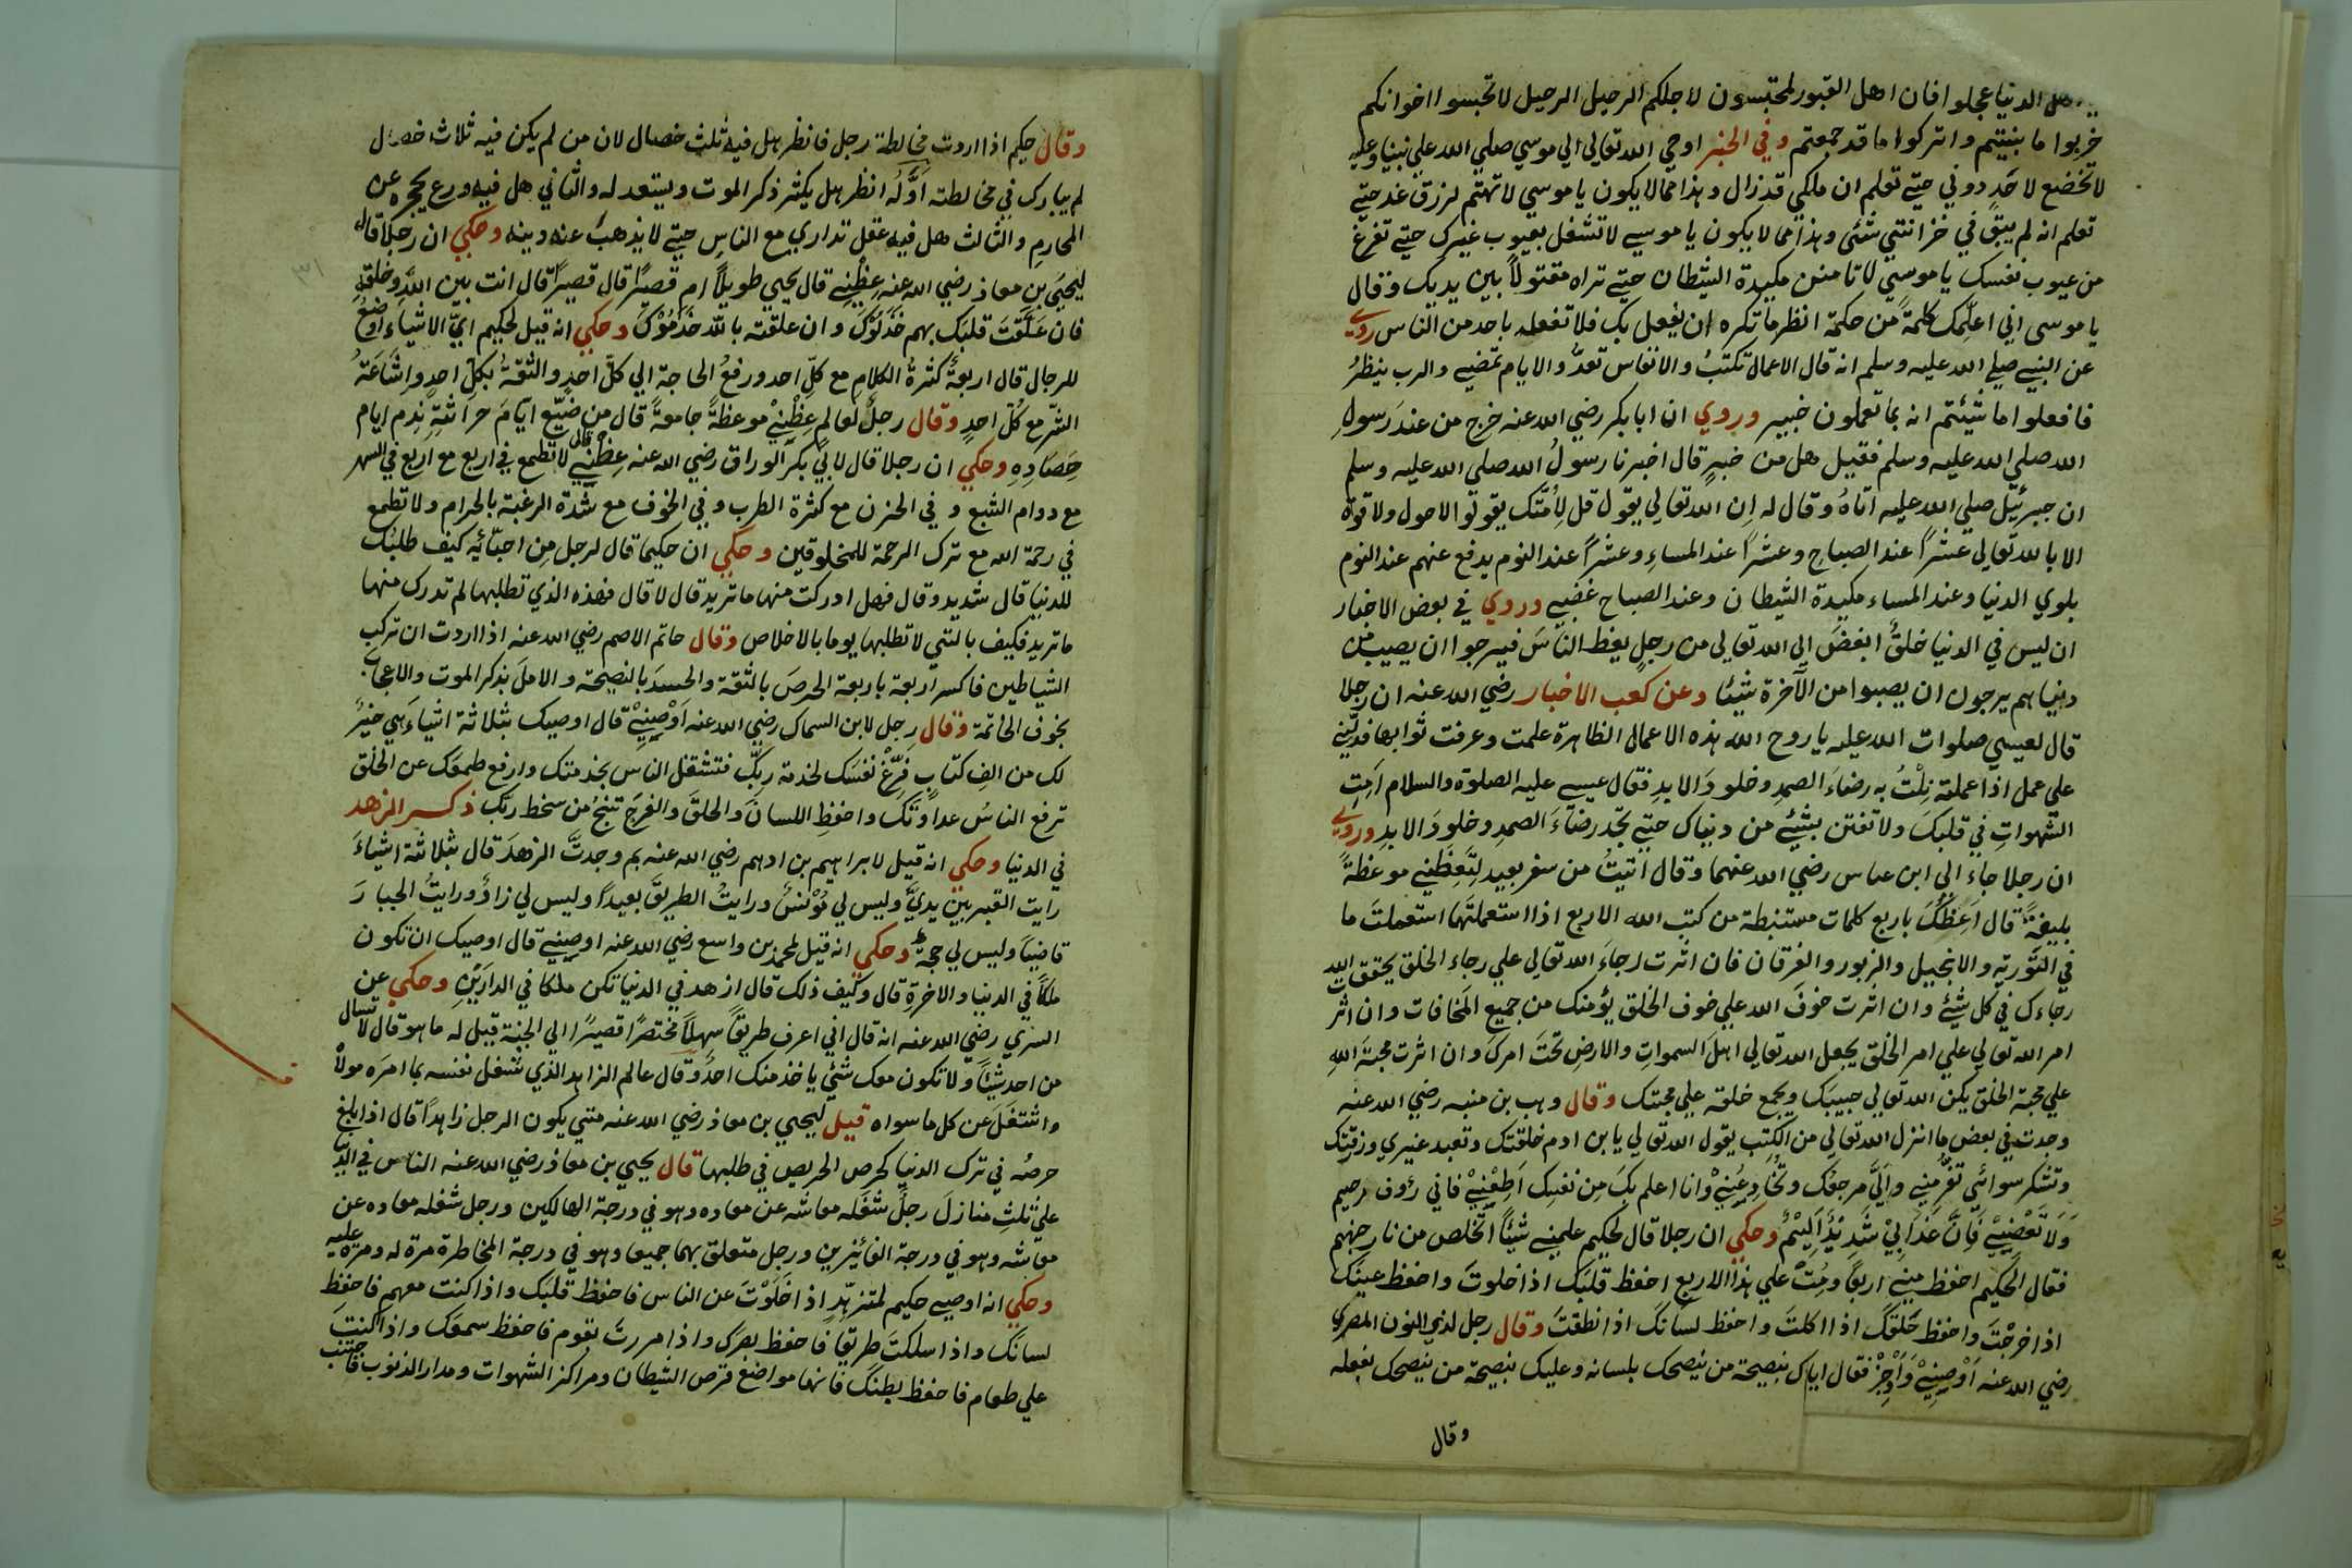 اهل الدنيا عجلوا فان اهل القبور لمحتبسون لاجلكم الرحيل الرحيل لا تحبسوا اخوانكم
خربوا ما بنيتم واتركوا ما قد جمعتم وفي الخبر اوحي الله تعالي الي موسي صلي الله علي نبينا وعليه
لا تخضع لاحد دوني حتي تعلم ان ملكي قد زال وهذا مما لا يكون يا موسي لا تهتم لرزق غد حتي
تعلم انه لم يبق في خزانتي شئ وهذا مما لا يكون يا موسي لا تشغل بعيوب غيرك حتي تفرغ
من عيوب نفسك يا موسي لا تامنن مكيدة الشيطان حتي تراه مقتولا بين يديك وقال
يا موسى اني اعلمك كلمة من حكمة انظر ما تكره ان يفعل بك فلا تفعله باحد من الناس روي
عن النبي صلي الله عليه وسلم انه قال الاعمال تكتب والانفاس تعد والايام تمضي والرب ينظر
فافعلوا ما شيئتم انه بما تعملون خبير وروي ان ابا بكر رضي الله عنه خرج من عند رسول
الله صلي الله عليه وسلم فقيل هل من خبر قال اخبرنا رسول الله صلي الله عليه وسلم
ان جبرئيل صلي الله عليه اتاه وقال له ان الله تعالي يقول قل لامتك يقولوا لا حول ولا قوة
الا بالله تعالي عشرا عند الصباح وعشرا عند المساء وعشرا عند النوم يدفع عنهم عند النوم
بلوي الدنيا وعند المساء مكيدة الشيطان وعند الصباح غضبي وروي في بعض الاخبار
ان ليس في الدنيا خلق ابغض الي الله تعالي من رجل يعظ الناس فيرجوا ان يصيب من
دنياهم يرجون ان يصيبوا من الآخرة شيئا وعن كعب الاخبار رضي الله عنه ان رجلا
قال لعيسي صلوات الله عليه يا روح الله هذه الاعمال الظاهرة علمت وعرفت ثوابها فدلني
علي عمل اذا عملته نلت به رضاء الصمد وخلود الابد فقال عيسي عليه الصلوة والسلام امت
الشهوات في قلبك ولا تفتن بشيئ من دنياك حتي تجد رضاء الصمد وخلود الابد وروي
ان رجلا جاء الي ابن عباس رضي الله عنهما وقال اتيت من سفر بعيد لتعظني موعظة
بليغة قال اعظك باربع كلمات مستنبطة من كتب الله الاربع اذا استعملتها استعملت ما
في التورية والانجيل والزبور والفرقان فان اثرت رجاء الله تعالي علي رجاء الخلق يحقق الله
رجاءك في كل شيئ وان اثرت خوف الله علي خوف الخلق يؤمنك من جميع المخافات وان اثر
امر الله تعالي علي امر الخلق يجعل الله تعالي اهل السموات والارض تحت امرك وان اثرت محبة الله
علي محبة الخلق يكن الله تعالي حبيبك ويجمع خلقه علي محبتك وقال وهب بن منبه رضي الله عنه
وجدت في بعض ما انزل الله تعالي من الكتب يقول الله تعالي يا بن ادم خلقتك وتعبد غيري ورزقتك
وتشكر سوائي تفر مني والي مرجعك وتخادعني وانا اعلم بك من نفسك اطعني فاني رؤف رحيم
ولا تعصني فان عذابي شديد اليم وحكي ان رجلا قال لحكيم علمني شيئا اتخلص من نار جهنم
فقال الحكيم احفظ مني اربعا ومت علي هذا الاربع احفظ قلبك اذا خلوت واحفظ عينك
اذا خرجت واحفظ حلقك اذا اكلت واحفظ لسانك اذا نطقت وقال رجل لذي النون المصري
رضي الله عنه اوصيني واوجز فقال اياك بنصيحة من ينصحك بلسانه وعليك بنصيحة من ينصحك بفعله
وقال
وقال حكيم اذا اردت مخالطة رجل فانظر هل فيه ثلث خصال لان من لم يكن فيه ثلاث خصال
لم يبارك في مخالطته اوله انظر هل يكثر ذكر الموت ويستعد له والثاني هل فيه ورع يحجزه عن
المحارم والثالث هل فيه عقل تداري مع الناس حتي لا يذهب عنه دينه وحكي ان رجلا قال
ليحيي بن معاذ رضي الله عنه عظني قال يحيي طويلا ام قصيرا قال قصيرا قال انت بين الله وخلقه
فان علقت قلبك بهم خذلوك وان علقته بالله خدموك وحكي انه قيل لحكيم اي الاشياء اوضع
للرجال قال اربعة كثرة الكلام مع كل احد ورفع الحاجة الي كل احد والثقة بكل احد واشاعة
الشر مع كل احد وقال رجل لعالم عظني موعظة جامعة قال من ضيع ايام حراثته ندم ايام
حصاده وحكي ان رجلا قال لابي بكر الوراق رضي الله عنه عظني قال لا تطمع في اربع مع اربع في السهر
مع دوام الشبع وفي الحزن مع كثرة الطرب وفي الخوف مع شدة الرغبة بالحرام ولا تطمع
في رحمة الله مع ترك الرحمة للمخلوقين وحكي ان حكيما قال لرجل من احبائه كيف طلبك
للدنيا قال شديد وقال فهل ادركت منها ما تريد قال لا قال فهذه الذي تطلبها لم تدرك منها
ما تريد فكيف بالتي لا تطلبها يوما بالاخلاص وقال حاتم الاصم رضي الله عنه اذا اردت ان تركب
الشياطين فاكسر اربعة باربعة الحرص بالثقة والحسد بالنصيحة والامل بذكر الموت والاعجاب
بخوف الخاتمة وقال رجل لابن السماك رضي الله عنه اوصيني قال اوصيك بثلاثة اشياء هي خير
لك من الف كتاب فرغ نفسك لخدمة ربك فتشتغل الناس بخدمتك وارفع طمعك عن الخلق
ترفع الناس عداوتك واحفظ اللسان والحلق والفرج تنج من سخط ربك ذكر الزهد
في الدنيا وحكي انه قيل لابراهيم بن ادهم رضي الله عنه بم وجدت الزهد قال بثلاثة اشياء
رايت القبر بين يدي وليس لي مؤنس ورايت الطريق بعيدا وليس لي زاد ورايت الجبار
قاضيا وليس لي حجة وحكي انه قيل لمحمد بن واسع رضي الله عنه اوصيني قال اوصيك ان تكون
ملكا في الدنيا والاخرة قال وكيف ذلك قال ازهد في الدنيا تكن ملكا في الدارين وحكي عن
السري رضي الله عنه انه قال اني اعرف طريقا سهلا مختصرا قصيرا الي الجنة قيل له ما هو قال لا تسال
من احد شيئا ولا تكون معك شئ ياخذ منك احد وقال عالم الزاهد الذي شغل نفسه بما امره مولاه
واشتغل عن كل ما سواه قيل ليحيي بن معاذ رضي الله عنه متي يكون الرجل زاهدا قال اذا بلغ
حرصه في ترك الدنيا كحرص الحريص في طلبها قال يحيي بن معاذ رضي الله عنه الناس في الدنيا
علي ثلث منازل رجل شغله معاشه عن معاده وهو في درجة الهالكين ورجل شغله معاده عن
معاشه وهو في درجة الفائزين ورجل متعلق بهما جميعا وهو في درجة المخاطرة مرة له ومرة عليه
وحكي انه اوصي حكيم لمتزهد اذا خلوت عن الناس فاحفظ قلبك واذا كنت معهم فاحفظ
لسانك واذا سلكت طريقا فاحفظ بصرك واذا مررت بقوم فاحفظ سمعك واذا كنت
علي طعام فاحفظ بطنك فانها مواضع فرص الشيطان ومراكز الشهوات ومدار الذنوب فاجتنب